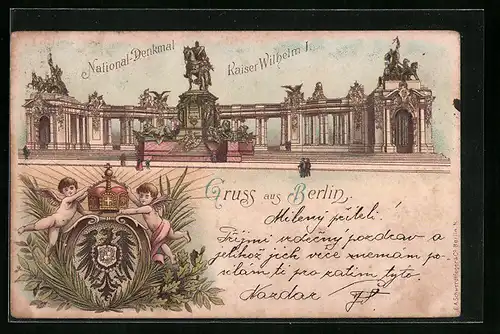 National-Denkmal Kaiser Wilhelm I.
Gruss aus Berlin,
Milený příteli!
Přijmi srdečný pozdrav a
jelikož jich více nemam po-
silam ti pro zatim tyto.
Nazdar